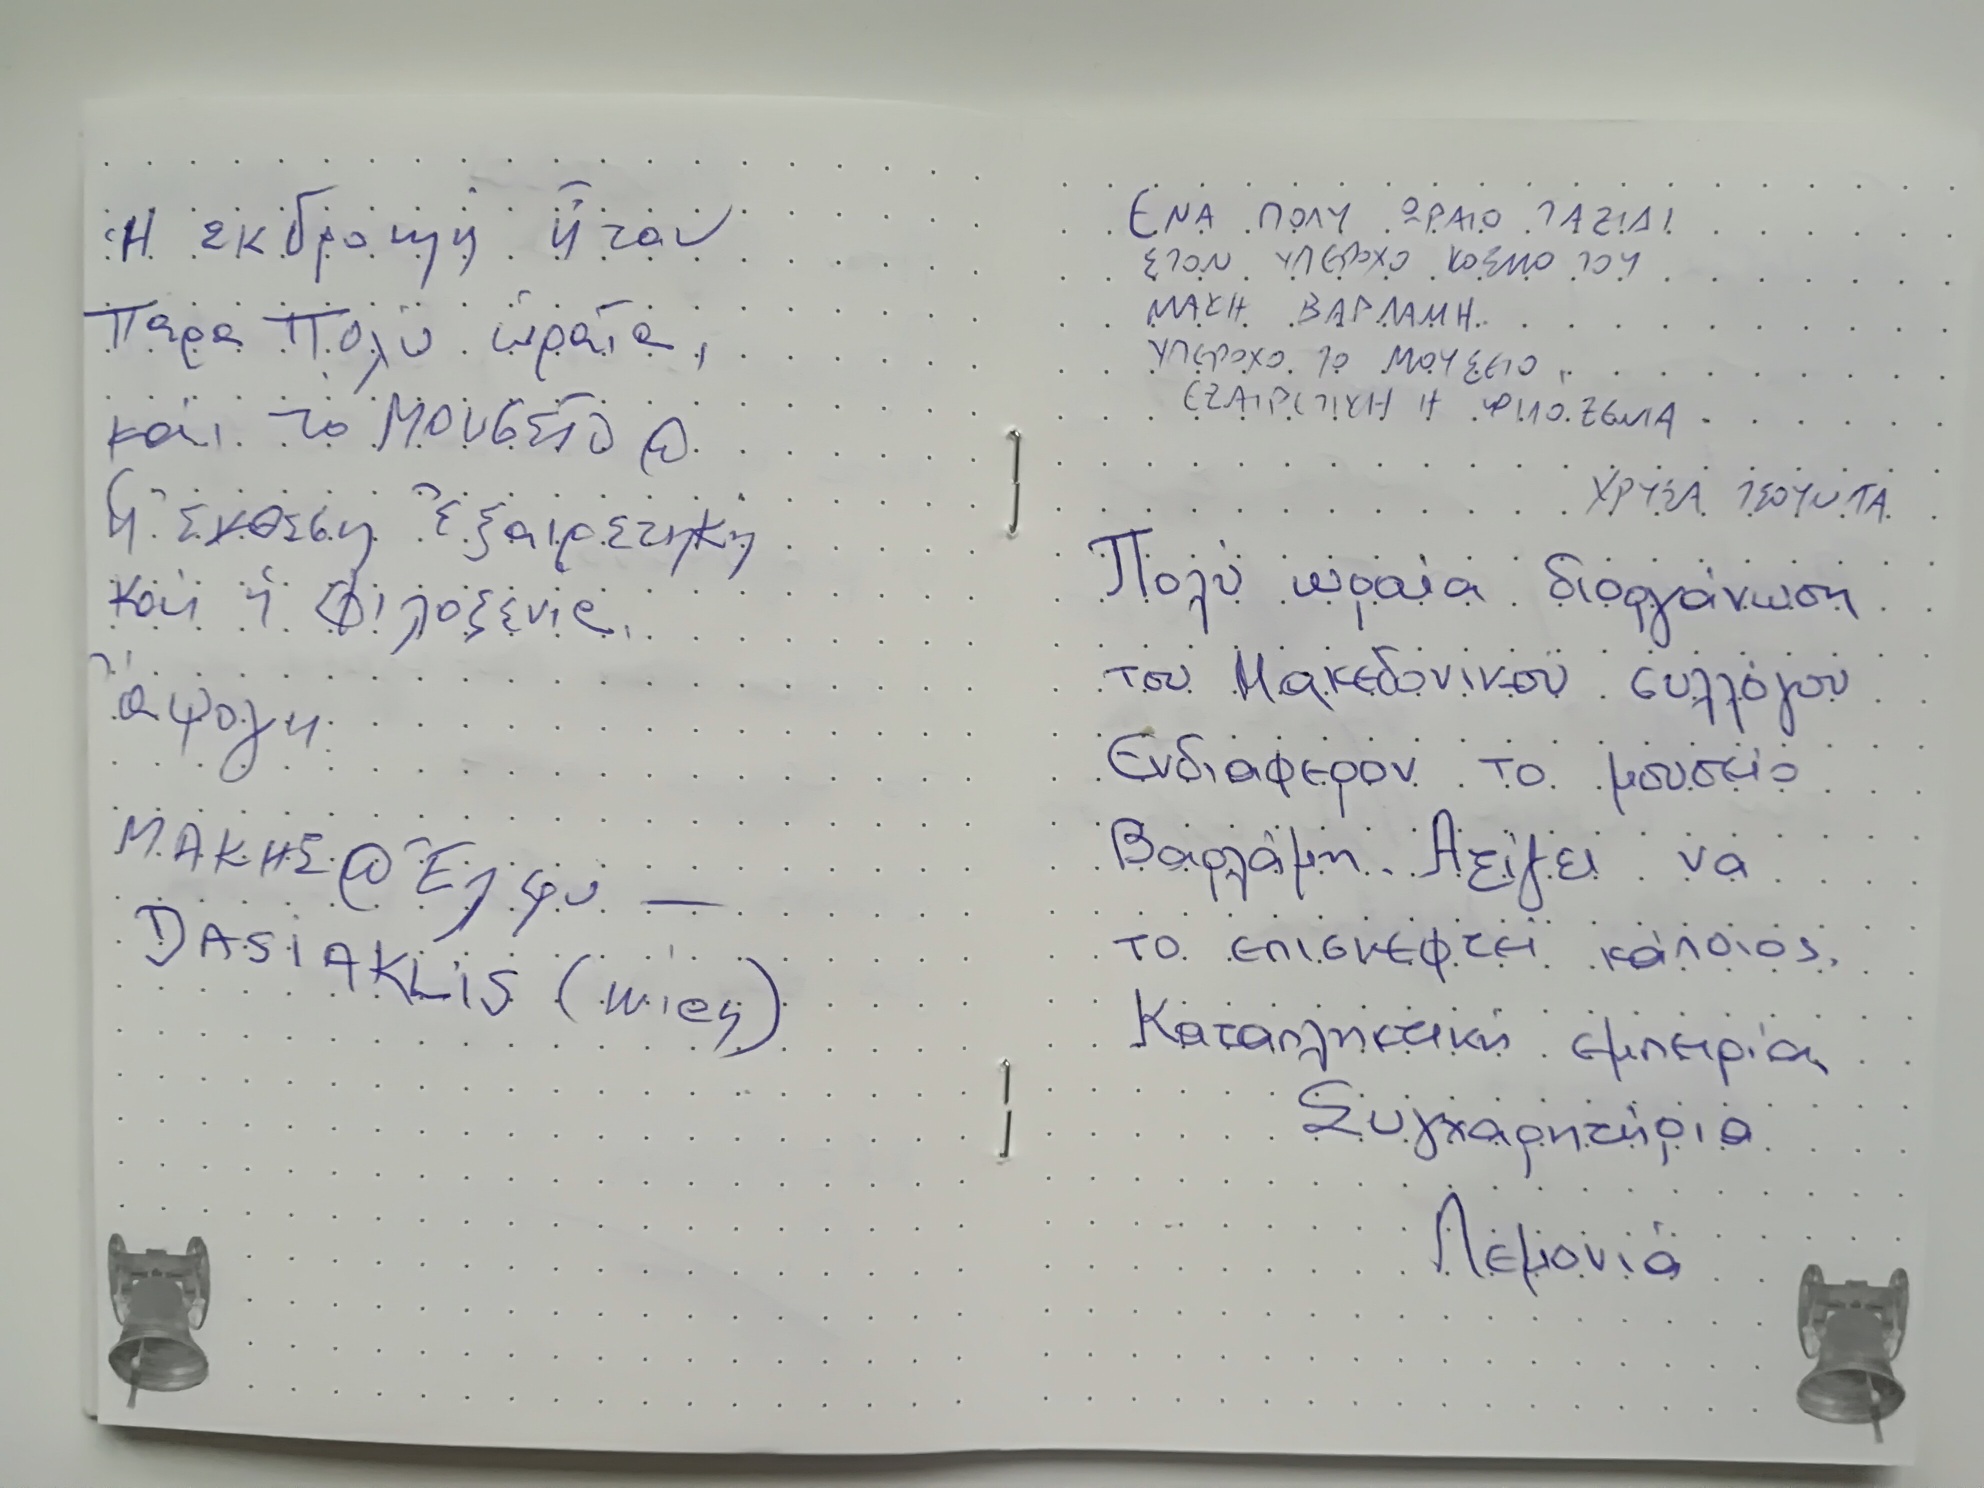 Ἡ ἐκδρομη ἦταν
Παρα Πολύ ὡραῖα,
και το Μουσεῖο @
ἡ ἔκθεση Ἐξαιρετηκη
και ἡ Φιλοξενια.
ἄψογη.
ΜΑΚΗΣ @ Ἔλφυ —
DASIAKLIS (wien)
ΕΝΑ ΠΟΛΥ ΩΡΑΙΟ ΤΑΞΙΔΙ
ΣΤΟΝ ΥΠΕΡΟΧΟ ΚΟΣΜΟ ΤΟΥ
ΜΑΚΗ ΒΑΡΛΑΜΗ.
ΥΠΕΡΟΧΟ ΤΟ ΜΟΥΣΕΙΟ,
ΕΞΑΙΡΕΤΙΚΗ Η ΦΙΛΟΞΕΝΙΑ.
ΧΡΥΣΑ ΤΣΟΥΝΤΑ
Πολύ ωραία διοργάνωση
του Μακεδονικού συλλόγου
Ενδιαφερον το μουσείο
Βαρλάμη. Αξίζει να
το επισκεφτεί κάποιος.
Καταπληκτική εμπειρία
Συγχαρητήρια
Λεμονιά